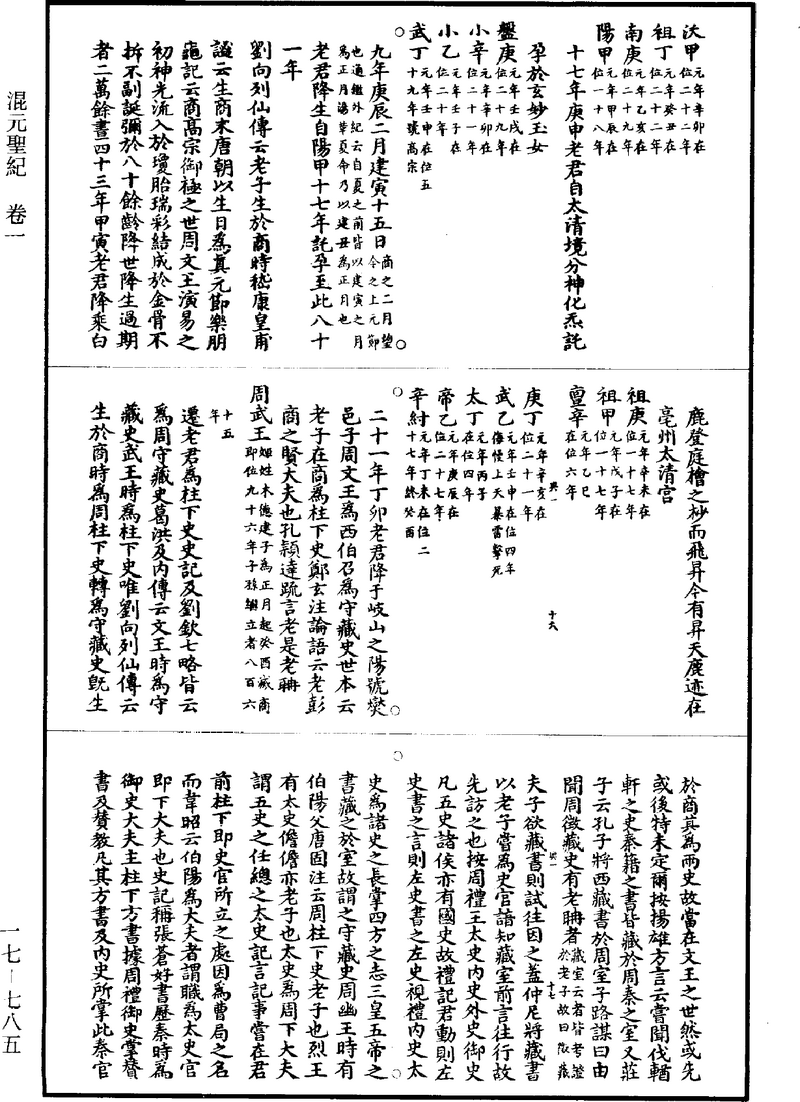 混元聖紀　卷一
沃甲元年辛卯在位二十二年
祖丁元年癸丑在位二十二年
南庚元年乙亥在位二十九年
陽甲元年甲辰在位一十八年
十七年庚申老君自太清境分神化炁託
孕於玄妙玉女
盤庚元年壬戌在位二十九年
小辛元年辛卯在位二十一年
小乙元年壬子在位二十年
武丁元年壬申在位五十九年號高宗
九年庚辰二月建寅十五日商之二月望今之上元節
也通鑑外紀云自夏之前皆以建寅之月為正月湯革夏命乃以建丑為正月也
老君降生自陽甲十七年託孕至此八十
一年
劉向列仙傳云老子生於商時嵇康皇甫
謐云生商末唐朝以生日為真元節樂朋
龜記云商高宗御極之世周文王演易之
初神光流入於瓊胎瑞彩結成於金骨不
拆不副誕彌於八十餘齡降世降生過期
者二萬餘晝四十三年甲寅老君降乘白
鹿登庭檜之杪而飛昇今有昇天鹿迹在
亳州太清宮
祖庚元年辛未在位一十七年
祖甲元年戊子在位一十七年
亶辛元年乙巳在位六年
庚丁元年辛亥在位二十一年
武乙元年壬申在位四年侮慢上天暴雷擊死
太丁元年丙子在位四年
帝乙元年庚辰在位二十七年
辛紂元年丁未在位二十七年終癸酉
二十一年丁卯老君降于岐山之陽號燮
邑子周文王為西伯召為守藏史世本云
老子在商為柱下史鄭玄注論語云老彭
商之賢大夫也孔穎達疏言老是老聃
周武王姬姓木德建子為正月起癸酉滅商即位九十六年子孫繼立者八百六
十五年
遷老君為柱下史史記及劉歆七略皆云
為周守藏史葛洪及內傳云文王時為守
藏史武王時為柱下史唯劉向列仙傳云
生於商時為周柱下史轉為守藏史既生
十六
於商其為兩史故當在文王之世然或先
或後特未定爾按揚雄方言云嘗聞伐輶
軒之史秦籍之書皆藏於周秦之室又莊
子云孔子將西藏書於周室子路謀曰由
聞周徵藏史有老聃者
夫子欲藏書則試往因之蓋仲尼將藏書
以老子嘗為史官諳知藏室前言往行故
先訪之也按周禮王太史內史外史御史
凡五史諸侯亦有國史故禮記君動則左
史書之言則左史書之左史視禮內史太
史為諸史之長掌四方之志三皇五帝之
書藏之於室故謂之守藏史周幽王時有
伯陽父唐固注云周柱下史老子也烈王
有太史儋儋亦老子也太史為周下大夫
謂五史之任總之太史記言記事嘗在君
前柱下即史官所立之處因為曹局之名
而韋昭云伯陽為大夫者謂職為太史官
即下大夫也史記稱張蒼好書歷秦時為
御史大夫主柱下方書據周禮御史掌贊
書及贊教凡其方書及內史所掌此秦官
十七
一七－七八五